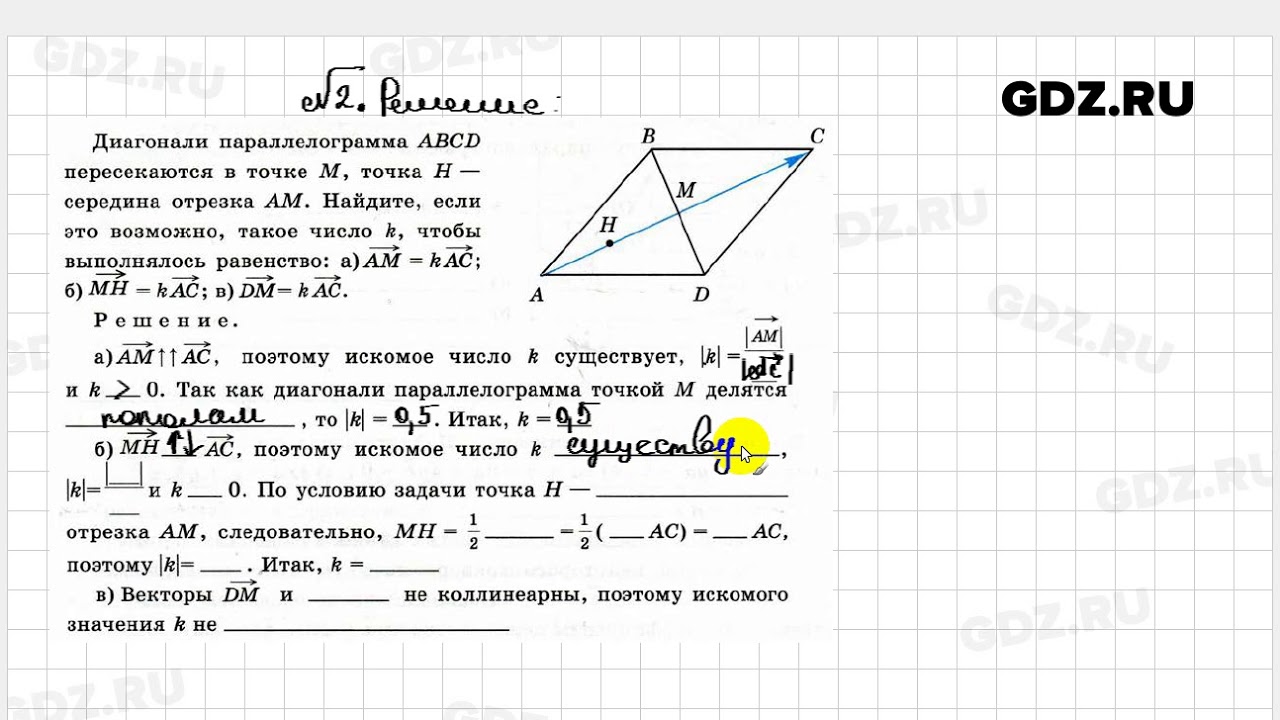 GDZ.RU
№2. Решение:
Диагонали параллелограмма ABCD
пересекаются в точке M, точка H —
середина отрезка AM. Найдите, если
это возможно, такое число k, чтобы
выполнялось равенство: а) AM = kAC;
б) MH = kAC; в) DM = kAC.
B
C
M
H
A
D
Решение.
а) AM ↑↑ AC, поэтому искомое число k существует, |k| = |AM| / |AC|
и k > 0. Так как диагонали параллелограмма точкой M делятся
пополам, то |k| = 0,5. Итак, k = 0,5
б) MH ↑↓ AC, поэтому искомое число k существу ,
|k|= и k ___ 0. По условию задачи точка H — ___
отрезка AM, следовательно, MH = 1/2 ___ = 1/2 ( ___ AC) = ___ AC,
поэтому |k|= ___ . Итак, k = ___
в) Векторы DM и ___ не коллинеарны, поэтому искомого
значения k не ___
GDZ.RU
GDZ.RU
GDZ.RU
GDZ.RU
GDZ.RU
GDZ.RU
GDZ.RU